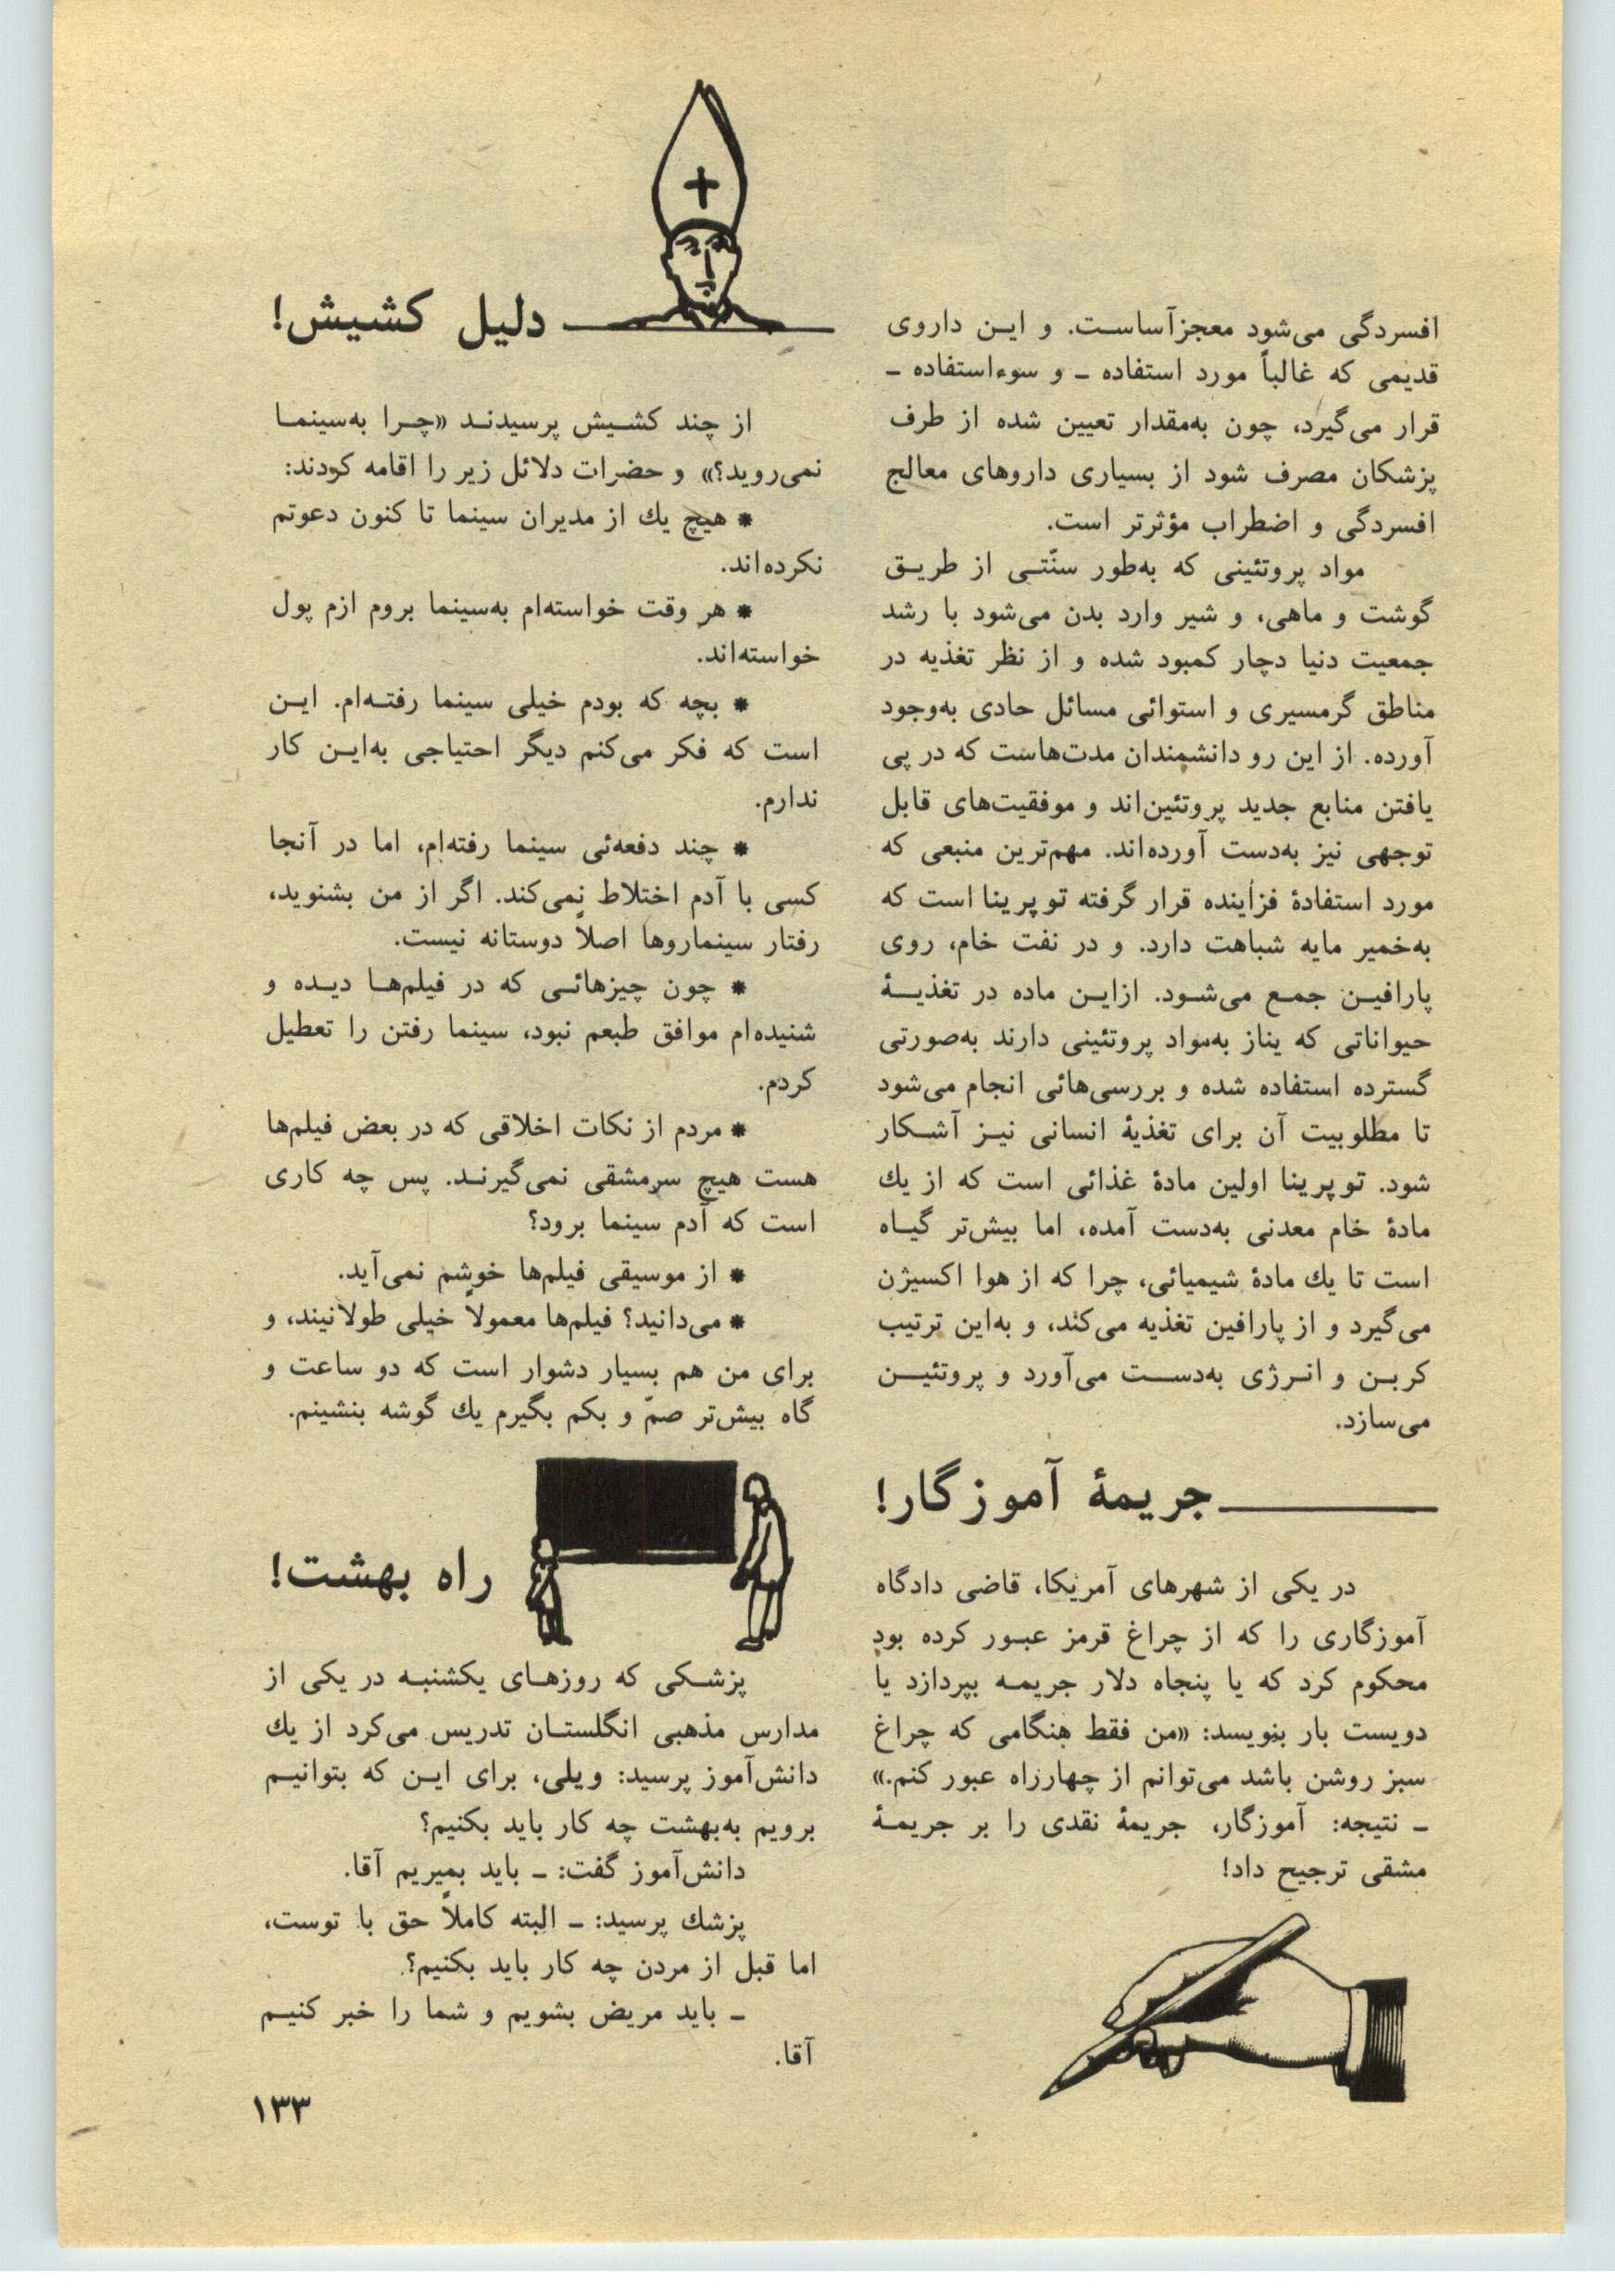 افسردگی می‌شود معجزآساست. و این داروی
قدیمی که غالباً مورد استفاده ـ و سوءاستفاده ـ
قرار می‌گیرد، چون به‌مقدار تعیین شده از طرف
پزشکان مصرف شود از بسیاری داروهای معالج
افسردگی و اضطراب مؤثرتر است.
مواد پروتئینی که به‌طور سنّتی از طریق
گوشت و ماهی، و شیر وارد بدن می‌شود با رشد
جمعیت دنیا دچار کمبود شده و از نظر تغذیه در
مناطق گرمسیری و استوائی مسائل حادی به‌وجود
آورده. از این رو دانشمندان مدت‌هاست که در پی
یافتن منابع جدید پروتئین‌اند و موفقیت‌های قابل
توجهی نیز به‌دست آورده‌اند. مهم‌ترین منبعی که
مورد استفادهٔ فزاینده قرار گرفته توپرینا است که
به‌خمیر مایه شباهت دارد. و در نفت خام، روی
پارافین جمع می‌شود. ازاین ماده در تغذیهٔ
حیواناتی که یناز به‌مواد پروتئینی دارند به‌صورتی
گسترده استفاده شده و بررسی‌هائی انجام می‌شود
تا مطلوبیت آن برای تغذیهٔ انسانی نیز آشکار
شود. توپرینا اولین مادهٔ غذائی است که از یك
مادهٔ خام معدنی به‌دست آمده، اما بیش‌تر گیاه
است تا یك مادهٔ شیمیائی، چرا که از هوا اکسیژن
می‌گیرد و از پارافین تغذیه می‌کند، و به‌این ترتیب
کربن و انرژی به‌دست می‌آورد و پروتئین
می‌سازد.
جریمهٔ آموزگار!
در یکی از شهرهای آمریکا، قاضی دادگاه
آموزگاری را که از چراغ قرمز عبور کرده بود
محکوم کرد که یا پنجاه دلار جریمه بپردازد یا
دویست بار بنویسد: «من فقط هنگامی که چراغ
سبز روشن باشد می‌توانم از چهارراه عبور کنم.»
ـ نتیجه: آموزگار، جریمهٔ نقدی را بر جریمهٔ
مشقی ترجیح داد!
دلیل کشیش!
از چند کشیش پرسیدند «چرا به‌سینما
نمی‌روید؟» و حضرات دلائل زیر را اقامه کردند:
* هیچ یك از مدیران سینما تا کنون دعوتم
نکرده‌اند.
* هر وقت خواسته‌ام به‌سینما بروم ازم پول
خواسته‌اند.
* بچه که بودم خیلی سینما رفته‌ام. این
است که فکر می‌کنم دیگر احتیاجی به‌این کار
ندارم.
* چند دفعه‌ئی سینما رفته‌ام، اما در آنجا
کسی با آدم اختلاط نمی‌کند. اگر از من بشنوید،
رفتار سینماروها اصلاً دوستانه نیست.
* چون چیزهائی که در فیلم‌ها دیده و
شنیده‌ام موافق طبعم نبود، سینما رفتن را تعطیل
کردم.
* مردم از نکات اخلاقی که در بعض فیلم‌ها
هست هیچ سرمشقی نمی‌گیرند. پس چه کاری
است که آدم سینما برود؟
* از موسیقی فیلم‌ها خوشم نمی‌آید.
* می‌دانید؟ فیلم‌ها معمولاً خیلی طولانیند، و
برای من هم بسیار دشوار است که دو ساعت و
گاه بیش‌تر صمّ و بکم بگیرم یك گوشه بنشینم.
راه بهشت!
پزشکی که روزهای یکشنبه در یکی از
مدارس مذهبی انگلستان تدریس می‌کرد از یك
دانش‌آموز پرسید: ویلی، برای این که بتوانیم
برویم به‌بهشت چه کار باید بکنیم؟
دانش‌آموز گفت: ـ باید بمیریم آقا.
پزشك پرسید: ـ البته کاملاً حق با توست،
اما قبل از مردن چه کار باید بکنیم؟
ـ باید مریض بشویم و شما را خبر کنیم
آقا.
۱۳۳